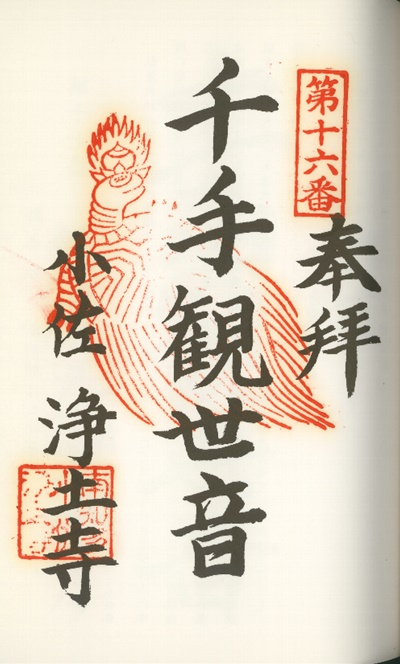 第十六番
奉拝
千手観世音
小佐 浄土寺